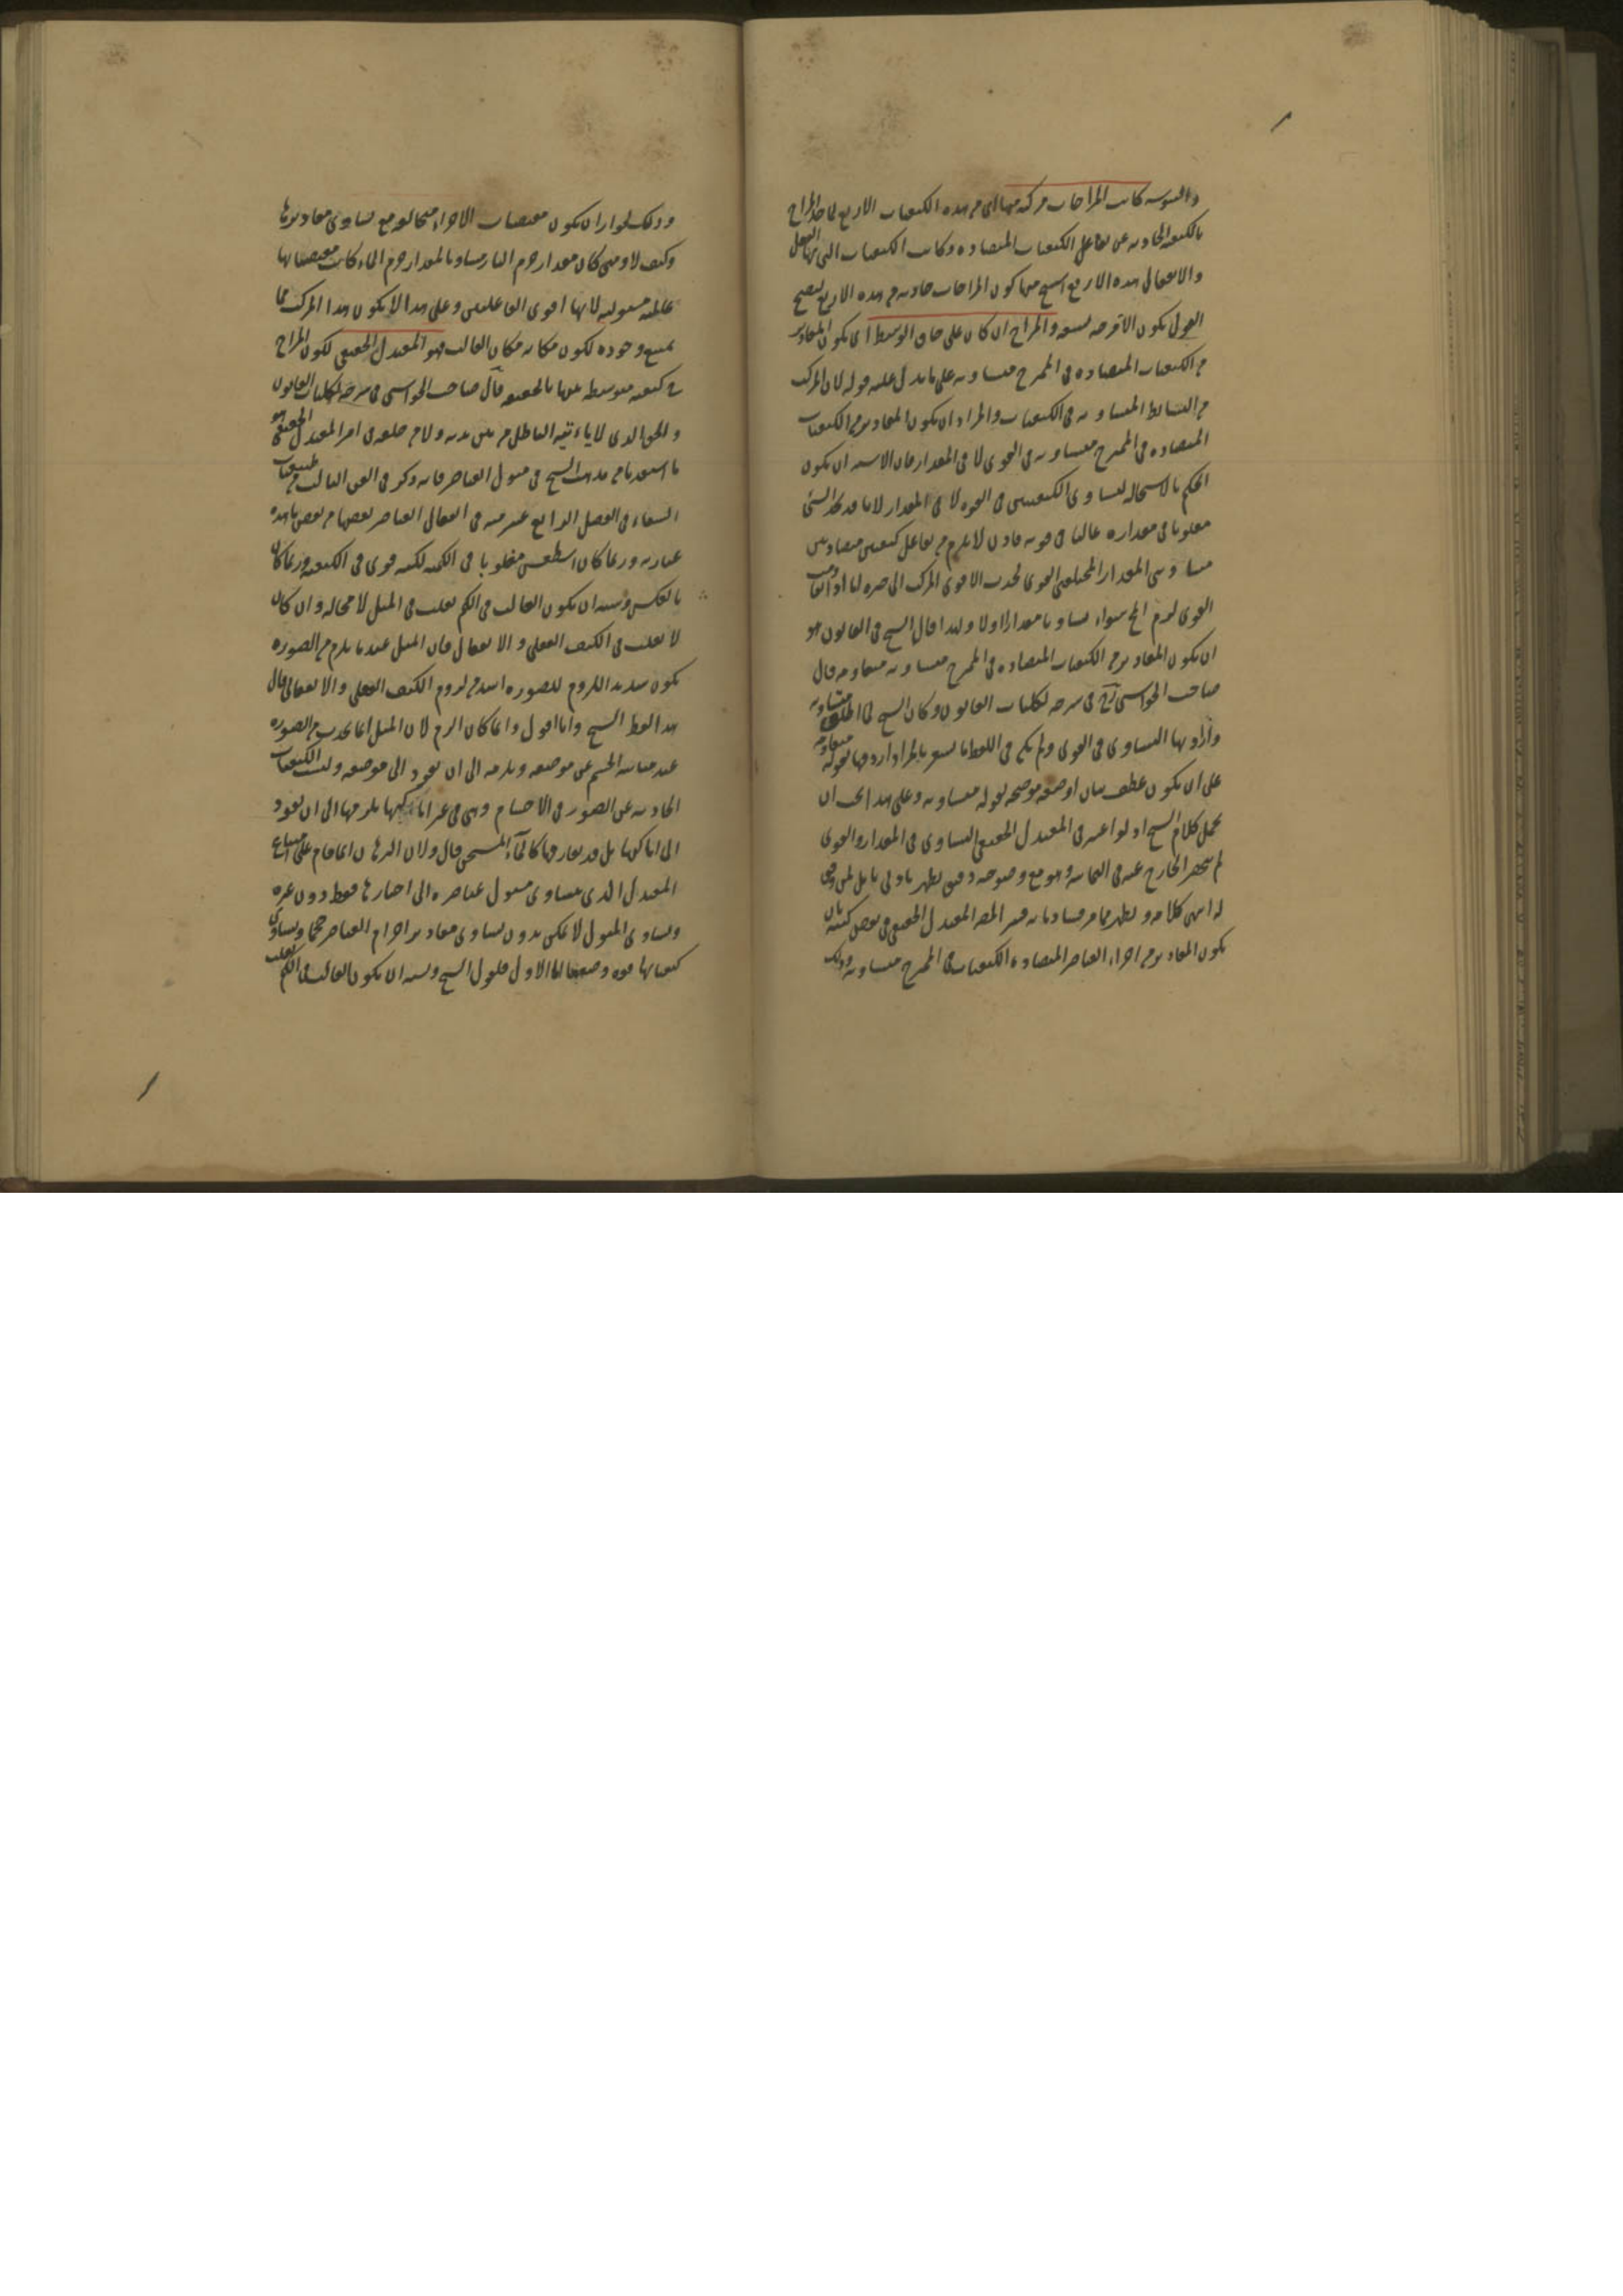 واليبوسة كانت المزاجات مركبة منها اى من هذه الكيفيات الاربع لما حد المزاج
بالكيفية الحادثة عن تفاعل الكيفيات المتضادة وكانت الكيفيات التى بها الفعل
والانفعال هذه الاربع كون المزاجات حادثة من هذه الاربع
القول بكون الامزجة تسعة والمزاج ان كان على حاق الوسط اى يكون المقادير
من الكيفيات المتضادة فى الممتزج متساوية على ما يدل عليه قوله لان المركب
من البسائط المتساوية فى الكيفيات والمراد ان يكون المقادير من الكيفيات
المتضادة فى الممتزج متساوية فى القوى لا فى المقدار فان الاشبه ان يكون
الحكم بالاستحالة لتساوى الكيفيتين فى القوة لا فى المقدار لانا قد نجد الشئ
مغلوبا فى مقداره غالبا فى قوته فاذن لا يلزم من تفاعل كيفيتين متضادتين
متساويتى المقدار المختلفتى القوى لجذب الاقوى المركب الى حيزه اما
القوى لزم الخ سواء تساويا مقدارا او لا ولهذا قال الشيخ فى القانون هو
ان يكون المقادير من الكيفيات المتضادة فى الممتزج متساوية متقاومة قال
صاحب الحواشى فى شرحه لكليات القانون وكان الشيخ لما اطلق متساوية
واراد بها التساوى فى القوى ولم يكن فى اللفظ ما يشعر بالمراد اردفها بقوله متقاومة
على ان يكون عطف بيان او صفة موضحة لقوله متساوية وعلى هذا يجب ان
يحمل كلام الشيخ اذ لو اعتبر فى المعتدل الحقيقى التساوى فى المقدار والقوى
لم ينحصر الخارج عنه فى الثمانية وهو مع وضوحه دقيق يظهر بادنى تامل لمن وفق
له انتهى كلامه ويظهر مما مر فساد ما به فسر المصنف المعتدل الحقيقى فى بعض كتبه بان
يكون المقادير من اجزاء العناصر المتضادة الكيفيات فى الممتزج متساوية وذلك
وذلك لجواز ان يكون مقتضيات الاجزاء متخالفة مع تساوى مقاديرها
وكيف لا ومتى كان مقدار جرم النار مساويا لمقدار جرم الماء كانت مقتضياتها
غالبة مستولية لانها اقوى الفاعلين وعلى هذا لا يكون هذا المركب مما
يمتنع وجوده لكون مكانه مكان الغالب فهو المعتدل الحقيقى لكون المزاج
كيفية متوسطة بينها بالحقيقة قال صاحب الحواشى فى شرحه لكليات القانون
والحق الذى لا ياتيه الباطل من بين يديه ولا من خلفه فى امر المعتدل الحقيقى هو
ما استفدنا من مذهب الشيخ فى ميول العناصر فانه ذكر فى الفن الثالث من طبيعيات
الشفاء فى الفصل الرابع عشر منه فى انفعال العناصر بعضها من بعض ما هذه
عبارته وربما كان اسطقس مغلوبا فى الكمية لكنه قوى فى الكيفية وربما كان
بالعكس ويشبه ان يكون الغالب فى الكم يغلب فى الميل لا محالة وان كان
لا يغلب فى الكيف الفعلى والانفعالى فان الميل عندنا يلزم من الصورة
يكون شديد اللزوم للصورة اشد من لزوم الكيف الفعلى والانفعالى قال
هذا لفظ الشيخ وانا اقول وانما كان الزم لان الميل انما يحدث من الصورة
عند مباينة الجسم عن موضعه ويلزمه الى ان يعود الى موضعه وليست الكيفيات
الحادثة عن الصور فى الاجسام وهى فى غير اماكنها يلزمها الى ان يعود
الى اماكنها بل قد يفارقها كالماء المسخن قال ولان البرهان انما قام على امتناع
المعتدل الذى يتساوى ميول عناصره الى احيازها فقط دون غيره
وتساوى الميول لا يمكن بدون تساوى مقادير اجرام العناصر حجما وتساوى
كيفياتها قوة وضعفا اما الاول فلقول الشيخ ويشبه ان يكون الغالب فى الكم يغلب